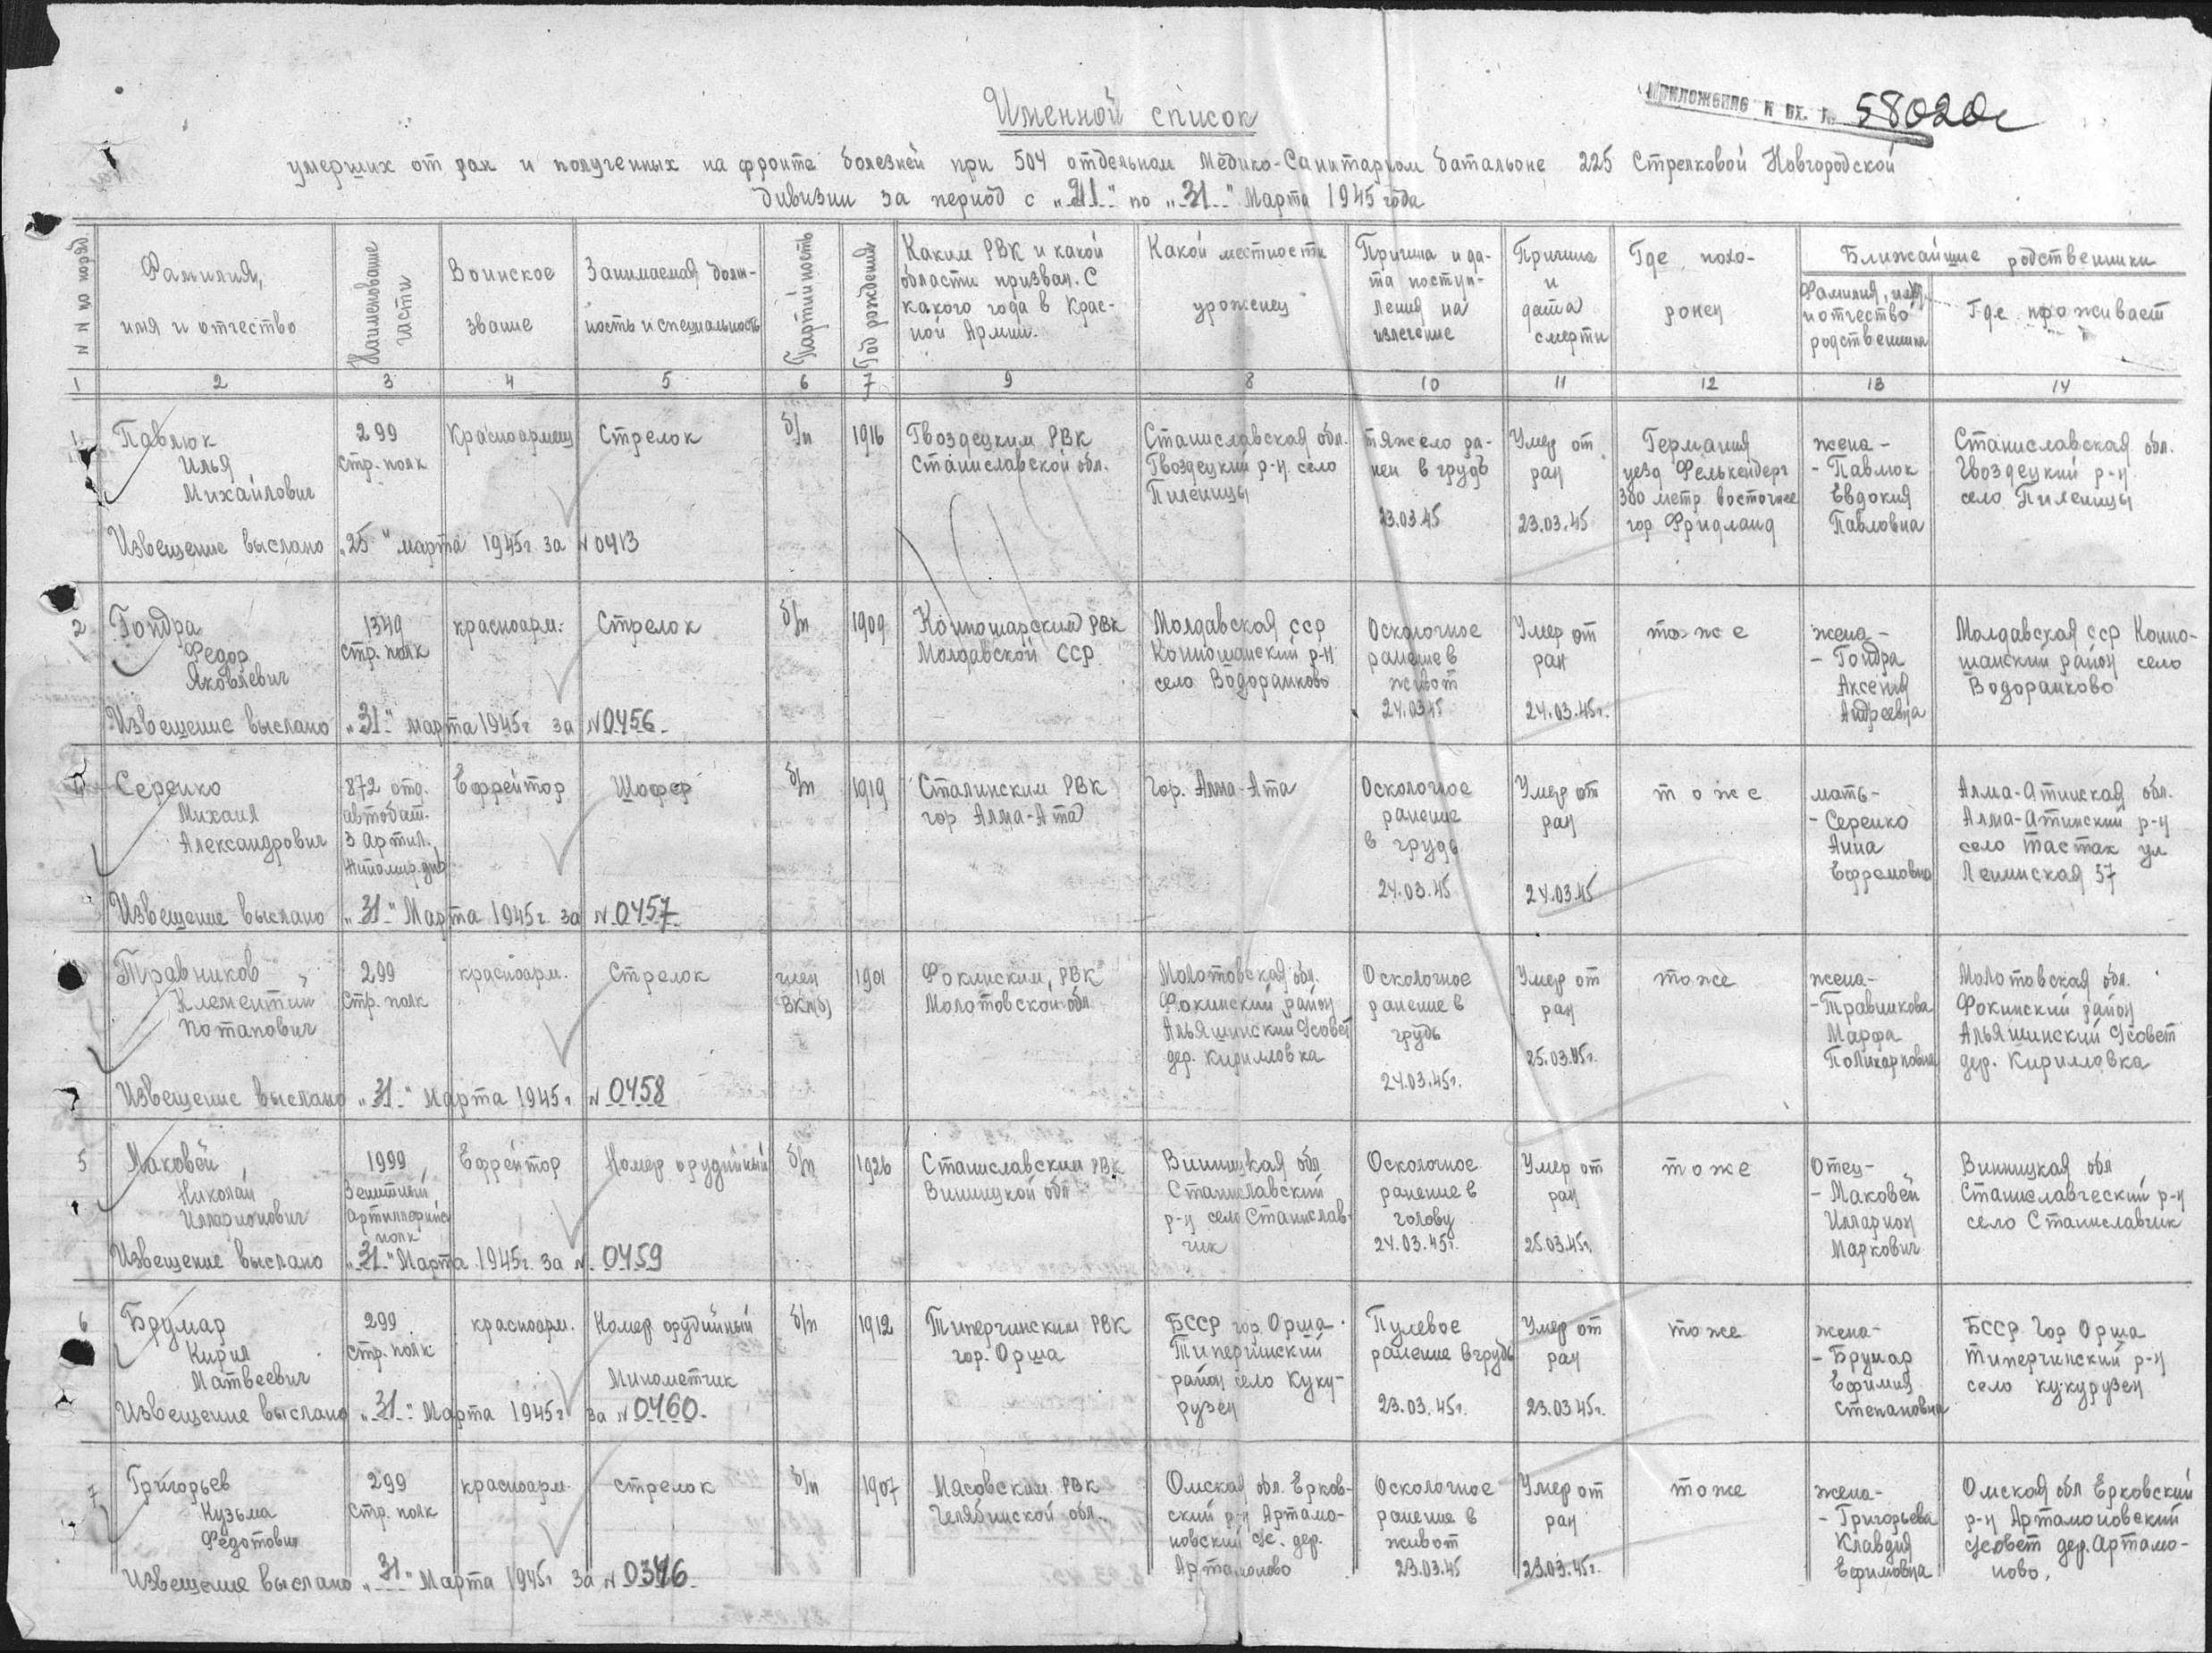 Именной список
Приложение к вх. № 58020с
умерших от ран и полученных на фронте болезней при 504 отдельном Медико-Санитарном батальоне 225 Стрелковой Новгородской
дивизии за период с „21" по „31" Марта 1945 года
N N по поряд
Фамилия,
имя и отчество
Наименование
части
Воинское
звание
Занимаемая долж-
ность и специальность
Партийность
Год рождения
Каким РВК и какой
области призван. С
какого года в Крас-
ной Армии.
Какой местности
уроженец
Причина и да-
та поступ-
ления на
излечение
Причина
и
дата
смерти
Где похо-
ронен
Ближайшие родственники
Фамилия, имя
и отчество
родственника
Где проживает
1 2 3 4 5 6 7 9 8 10 11 12 13 14
1
Павлюк
Илья
Михайлович
299
стр. полк
Красноармеец
Стрелок
б/п
1916
Гвоздецким РВК
Станиславской обл.
Станиславская обл.
Гвоздецкий р-н село
Пиленицы
тяжело ра-
нен в грудь
23.03.45
Умер от
ран
23.03.45
Германия
уезд Фелькенберг
300 метр. восточнее
гор Фридланд
жена -
- Павлюк
Евдокия
Павловна
Станиславская обл.
Гвоздецкий р-н
село Пиленицы
Извещение выслано „25" марта 1945г за N 0413
2
Гондра
Федор
Яковлевич
1349
стр. полк
красноарм.
Стрелок
б/п
1909
Конношарским РВК
Молдавской ССР
Молдавская сср
Конношанский р-н
село Водоранково
Осколочное
ранение в
живот
24.03.45
Умер от
ран
24.03.45г.
то же
жена -
- Гондра
Аксения
Андреевна
Молдавская сср Конно-
шанский район село
Водоранково
Извещение выслано „31" марта 1945г за N 0456.
Серенко
Михаил
Александрович
872 отд.
автобат.
3 Артил.
Житомир. див
Ефрейтор
Шофер
б/п
1919
Сталинским РВК
гор Алма-Ата
Гор. Алма-Ата
Осколочное
ранение
в грудь
24.03.45
Умер от
ран
24.03.45
то же
мать -
- Серенко
Анна
Ефремовна
Алма-Атинская обл.
Алма-Атинский р-н
село Тастак ул
Ленинская 37
Извещение выслано „31" Марта 1945г. за N 0457
Травников
Клементий
Потапович
299
стр. полк
красноарм.
Стрелок
член
ВКП(б)
1901
Фокинским РВК
Молотовской обл.
Молотовская обл.
Фокинский район
Альяшинский с/совет
дер. Кирилловка
Осколочное
ранение в
грудь
24.03.45г.
Умер от
ран
25.03.45г.
то же
жена -
- Травникова
Марфа
Поликарповна
Молотовская обл.
Фокинский район
Альяшинский с/совет
дер. Кирилловка
Извещение выслано „31" Марта 1945г N 0458
5
Маковей
Николай
Илларионович
1999
Зенитный
артиллерийс
полк
Ефрейтор
Номер орудийный
б/п
1926
Станиславским РВК
Винницкой обл
Винницкая обл
Станиславский
р-н село Станислав-
чик
Осколочное
ранение в
голову
24.03.45г.
Умер от
ран
25.03.45г.
то же
Отец -
- Маковей
Илларион
Маркович
Винницкая обл
Станиславческий р-н
село Станиславчик
Извещение выслано „31" Марта 1945г. за N 0459
6
Брумар
Кирил
Матвеевич
299
стр. полк
красноарм.
Номер орудийный
Минометчик
б/п
1912
Типерчинским РВК
гор. Орша
БССР гор. Орша
Типерчинский
район село Куку-
рузен
Пулевое
ранение в грудь
23.03.45г.
Умер от
ран
23.03 45г.
то же
жена -
- Брумар
Ефимия
Степановна
БССР Гор Орша
Типерчинский р-н
село кукурузен
Извещение выслано „31" Марта 1945г за N 0460.
7
Григорьев
Кузьма
Федотович
299
стр. полк
красноарм.
стрелок
б/п
1907
Масовским РВК
Челябинской обл.
Омская обл. Ерков-
ский р-н Артамо-
новский с/с. дер.
Артамоново
Осколочное
ранение в
живот
23.03.45
Умер от
ран
23.03.45г.
то же
жена -
- Григорьева
Клавдия
Ефимовна
Омская обл Ерковский
р-н Артамоновский
с/совет дер. Артамо-
ново.
Извещение выслано „31" Марта 1945г за N 0346.